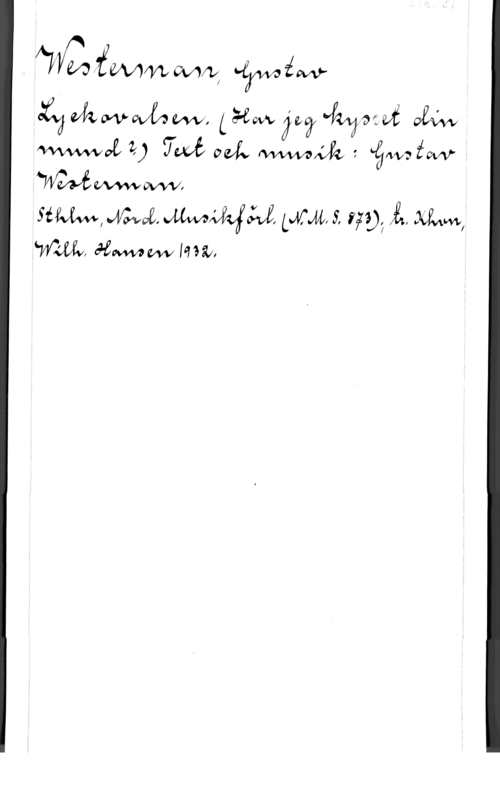 Westerman, Gustav
Lyckovalsen. (Har jeg kysset din
mund?) Text och musik: Gustav
Westerman.
Sthlm, Nord. Musikförl. (N.M.S. 873), tr. Khvn,
Wilh. Hansen 1932.